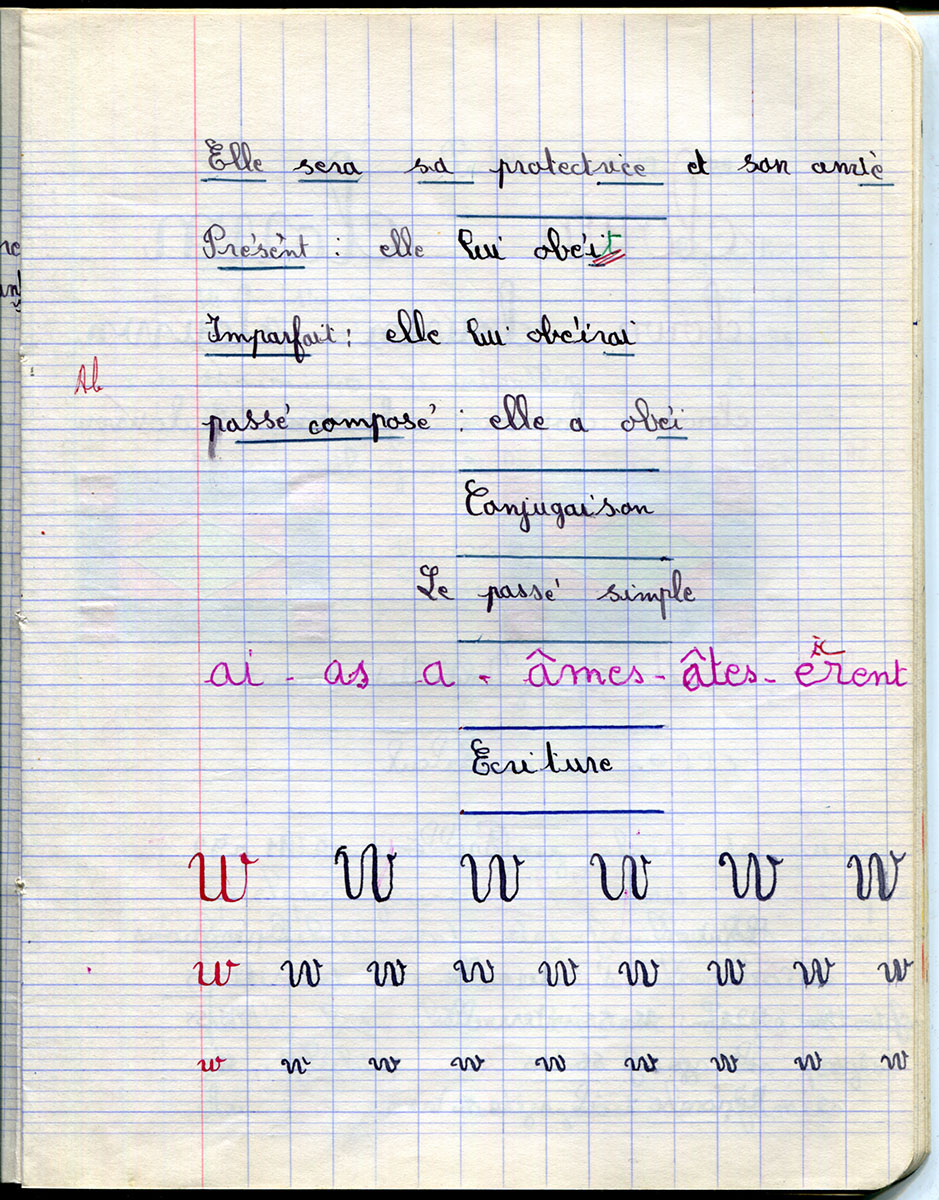 Elle sera sa protectrice et son amie
Présent : elle lui obéit
Imparfait : elle lui obéirai
passé composé : elle a obéi
Conjugaison
Le passé simple
ai - as a - âmes - âtes - èrent
Ecriture
w w w w w w
w w w w w w w w w
w w w w w w w w w